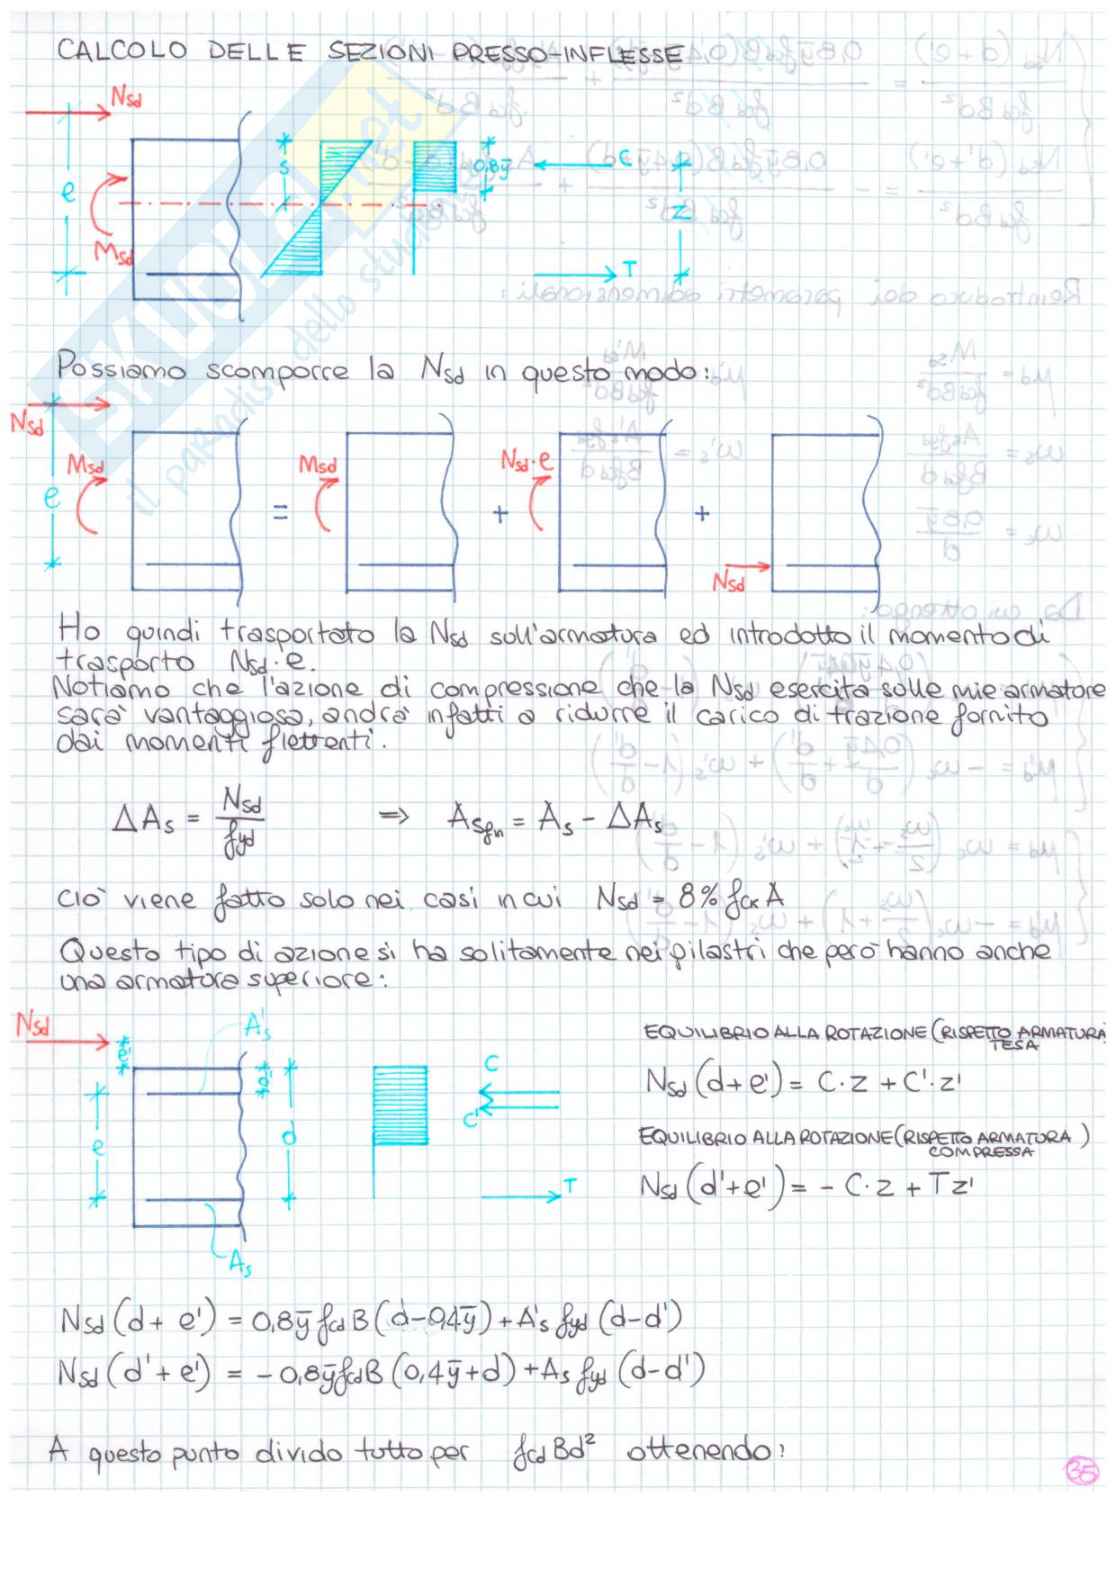 CALCOLO DELLE SEZIONI PRESSO-INFLESSE
Nsd
e
Msd
s
0,8ȳ
C
Z
T
Possiamo scomporre la Nsd in questo modo:
Nsd
Msd
e
=
Msd
+
Nsd·e
+
Nsd
Ho quindi trasportato la Nsd sull'armatura ed introdotto il momento di
trasporto Nsd·e.
Notiamo che l'azione di compressione che la Nsd esercita sulle mie armature
sarà vantaggiosa, andrà infatti a ridurre il carico di trazione fornito
dai momenti flettenti.
ΔAs = Nsd / fyd ⇒ Asfin = As - ΔAs
ciò viene fatto solo nei casi in cui Nsd = 8% fck A
Questo tipo di azione si ha solitamente nei pilastri che però hanno anche
una armatura superiore:
Nsd
e'
A's
d'
e
d
As
C
C'
T
EQUILIBRIO ALLA ROTAZIONE (RISPETTO ARMATURA
TESA
Nsd (d+e') = C·z + C'·z'
EQUILIBRIO ALLA ROTAZIONE (RISPETTO ARMATURA )
COMPRESSA
Nsd (d'+e') = - C·z + Tz'
Nsd (d+ e') = 0,8ȳ fcd B (d-0,4ȳ) + A's fyd (d-d')
Nsd (d'+ e') = -0,8ȳ fcd B (0,4ȳ+d) + As fyd (d-d')
A questo punto divido tutto per fcd Bd² ottenendo:
35